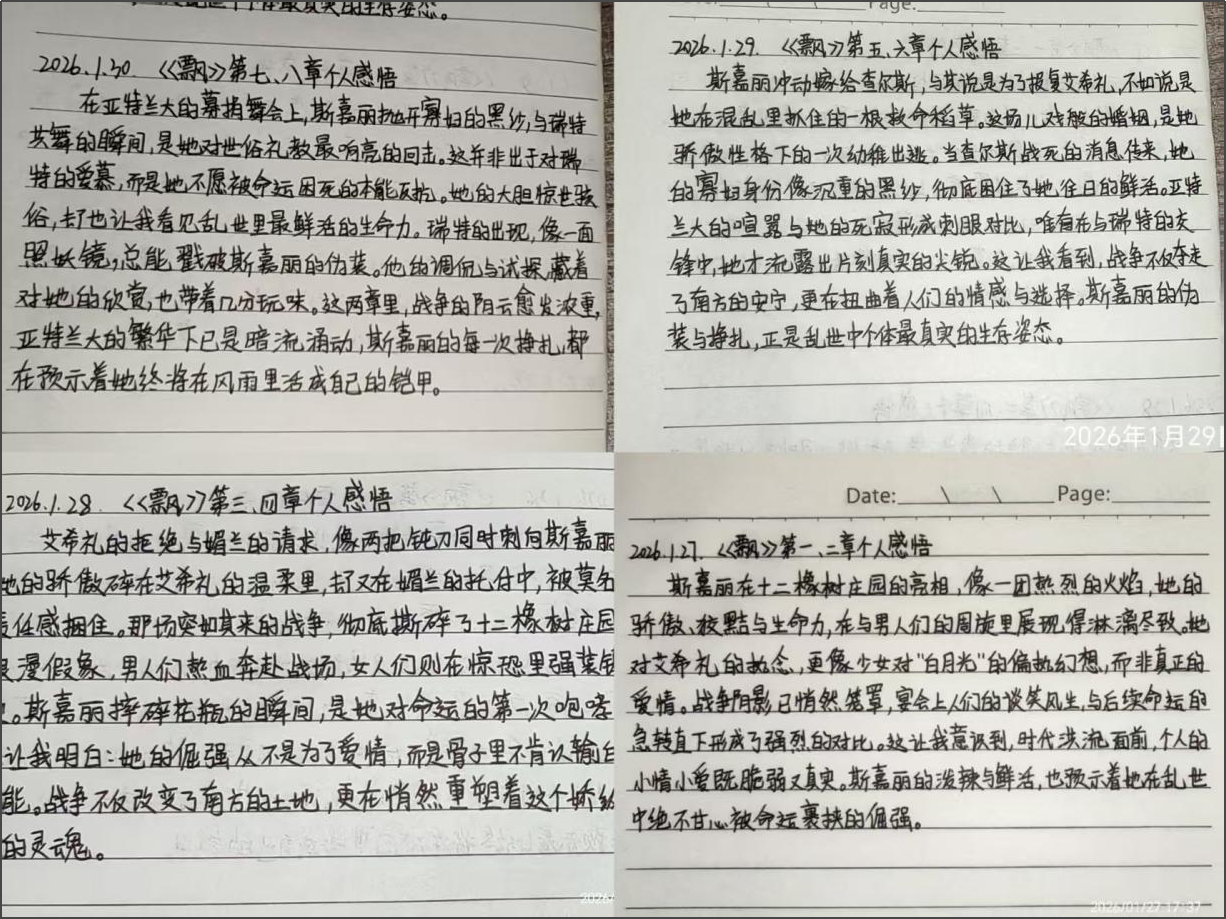 2026.1.30 《飘》第七、八章个人感悟
在亚特兰大的募捐舞会上，斯嘉丽抛开寡妇的黑纱，与瑞特
共舞的瞬间，是她对世俗礼教最响亮的回击。这并非出于对瑞
特的爱慕，而是她不愿被命运困死的本能反抗。她的大胆惊世骇
俗，却也让我看见乱世里最鲜活的生命力。瑞特的出现，像一面
照妖镜，总能戳破斯嘉丽的伪装。他的调侃与试探，藏着
对她的欣赏，也带着几分玩味。这两章里，战争的阴云愈发浓重，
亚特兰大的繁华下已是暗流涌动，斯嘉丽的每一次挣扎，都
在预示着她终将在风雨里活成自己的铠甲。
Page:
2026.1.29. 《飘》第五、六章个人感悟
斯嘉丽冲动嫁给查尔斯，与其说是为了报复艾希礼，不如说是
她在混乱里抓住的一根救命稻草。这场儿戏般的婚姻，是她
骄傲性格下的一次幼稚出逃。当查尔斯战死的消息传来，她
的寡妇身份像沉重的黑纱，彻底困住了她往日的鲜活。亚特
兰大的喧嚣与她的死寂形成刺眼对比，唯有在与瑞特的交
锋中，她才流露出片刻真实的尖锐。这让我看到，战争不仅夺走
了南方的安宁，更在扭曲着人们的情感与选择。斯嘉丽的伪
装与挣扎，正是乱世中个体最真实的生存姿态。
2026年1月29日
2026.1.28. 《飘》第三、四章个人感悟
艾希礼的拒绝与媚兰的请求，像两把钝刀同时刺向斯嘉丽
她的骄傲碎在艾希礼的温柔里，却又在媚兰的托付中，被莫名
责任感捆住。那场突如其来的战争，彻底撕碎了十二橡树庄园
浪漫假象，男人们热血奔赴战场，女人们则在惊恐里强装镇
。斯嘉丽摔碎花瓶的瞬间，是她对命运的第一次咆哮
让我明白：她的倔强从不是为了爱情，而是骨子里不肯认输
能。战争不仅改变了南方的土地，更在悄然重塑着这个娇
的灵魂。
Date: \ \ Page:
2026.1.27. 《飘》第一、二章个人感悟
斯嘉丽在十二橡树庄园的亮相，像一团热烈的火焰，她的
骄傲、狡黠与生命力，在与男人们的周旋里展现得淋漓尽致。她
对艾希礼的执念，更像少女对"白月光"的偏执幻想，而非真正的
爱情。战争阴影已悄然笼罩，宴会上人们的谈笑风生，与后续命运的
急转直下形成了强烈的对比。这让我意识到，时代洪流面前，个人的
小情小爱既脆弱又真实。斯嘉丽的泼辣与鲜活，也预示着她在乱世
中绝不甘心被命运裹挟的倔强。
2026/01/27 17:37